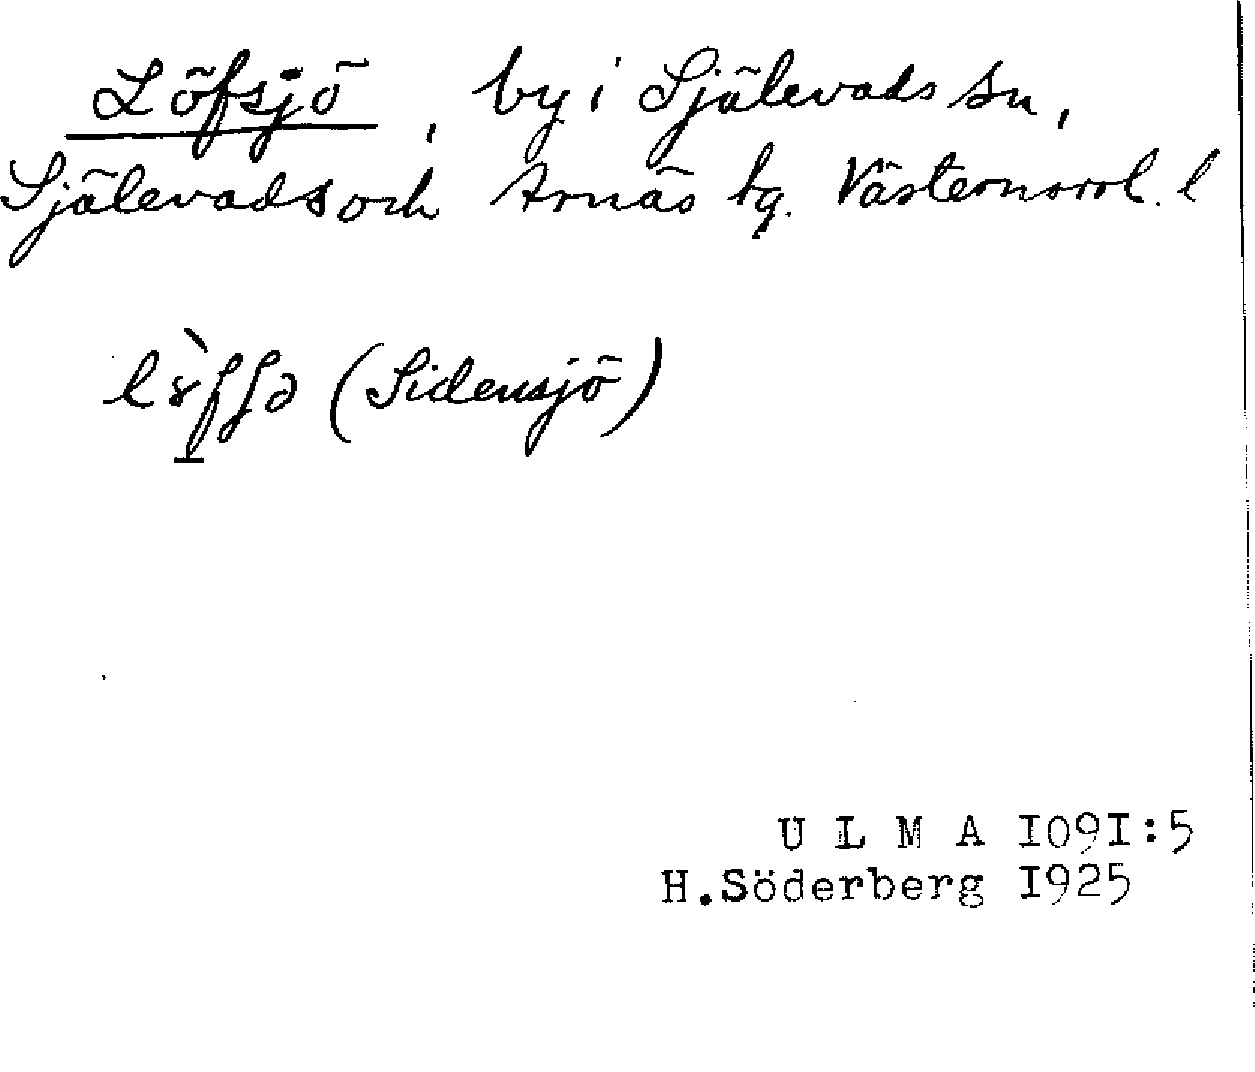 Löfsjö, by i Själevads sn,
Själevads och Arnäs tg. Västernorrl. l
(Sidensjö)
U L M A I09I:5
H.Söderberg I925